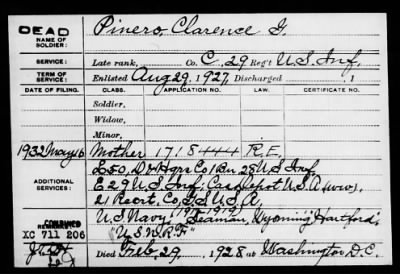 DEAD
NAME OF SOLDIER: Pinero, Clarence G.
SERVICE: Late rank, Co. C, 29 Reg't U.S. Inf.
TERM OF SERVICE: Enlisted Aug 29, 1927, Discharged , 1
DATE OF FILING. CLASS. APPLICATION NO. LAW. CERTIFICATE NO.
Soldier,
Widow,
Minor,
1932 May 16 Mother 1718444 R.E.
ADDITIONAL SERVICES: E & D, Hqrs Co 1 Bn 28 U.S. Inf.
E 29 U.S. Inf; Cas Depot U.S.A (WW),
21 Recrt. Co, G.S. U.S.A,
U.S. Navy, Seaman, Wyoming, Hartford,
XC 711 206
Died Feb. 29, 1928, at Washington D.C.